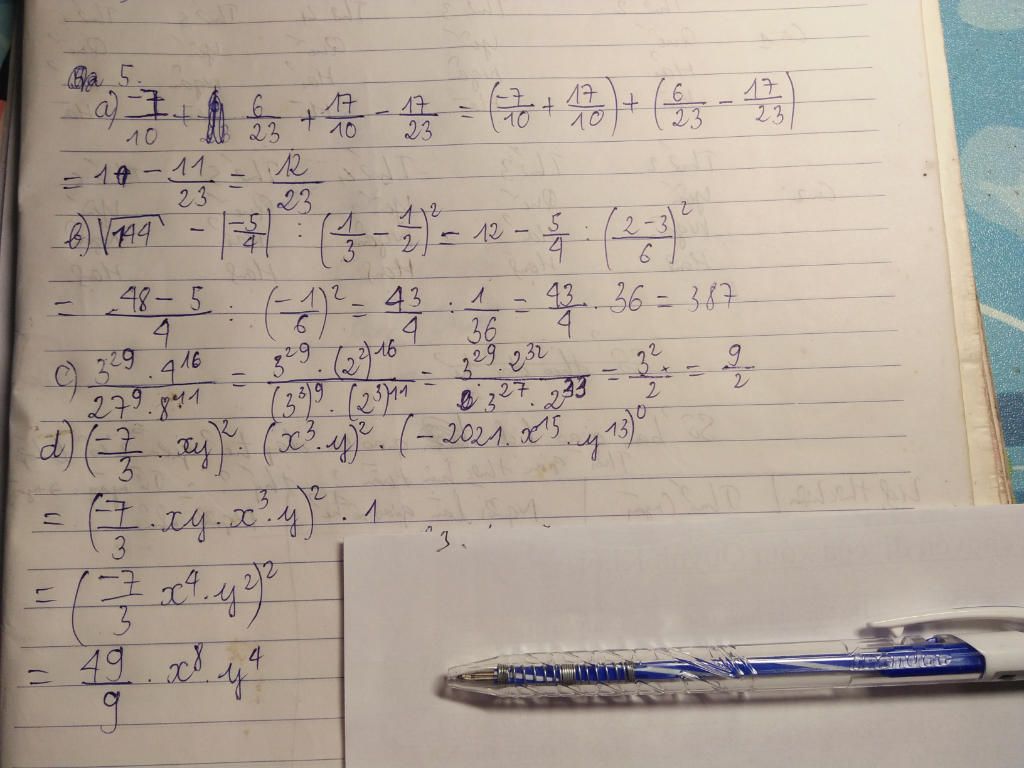 Bài 5.
a) -7/10 + 6/23 + 17/10 - 17/23 = (-7/10 + 17/10) + (6/23 - 17/23)
= 1 - 11/23 = 12/23
b) √144 - |-5/4| : (1/3 - 1/2)² = 12 - 5/4 : (2-3/6)²
= 48-5/4 : (-1/6)² = 43/4 : 1/36 = 43/4 . 36 = 387
c) 3²⁹ . 4¹⁶/27⁹ . 8¹¹ = 3²⁹ . (2²)¹⁶/(3³)⁹ . (2³)¹¹ = 3²⁹ . 2³²/3²⁷ . 2³³ = 3²/2 = 9/2
d) (-7/3 . xy)² . (x³ . y)² . (-2021 . x¹⁵ . y¹³)⁰
= (-7/3 . xy . x³ . y)² . 1
= (-7/3 x⁴ . y²)²
= 49/9 . x⁸ . y⁴